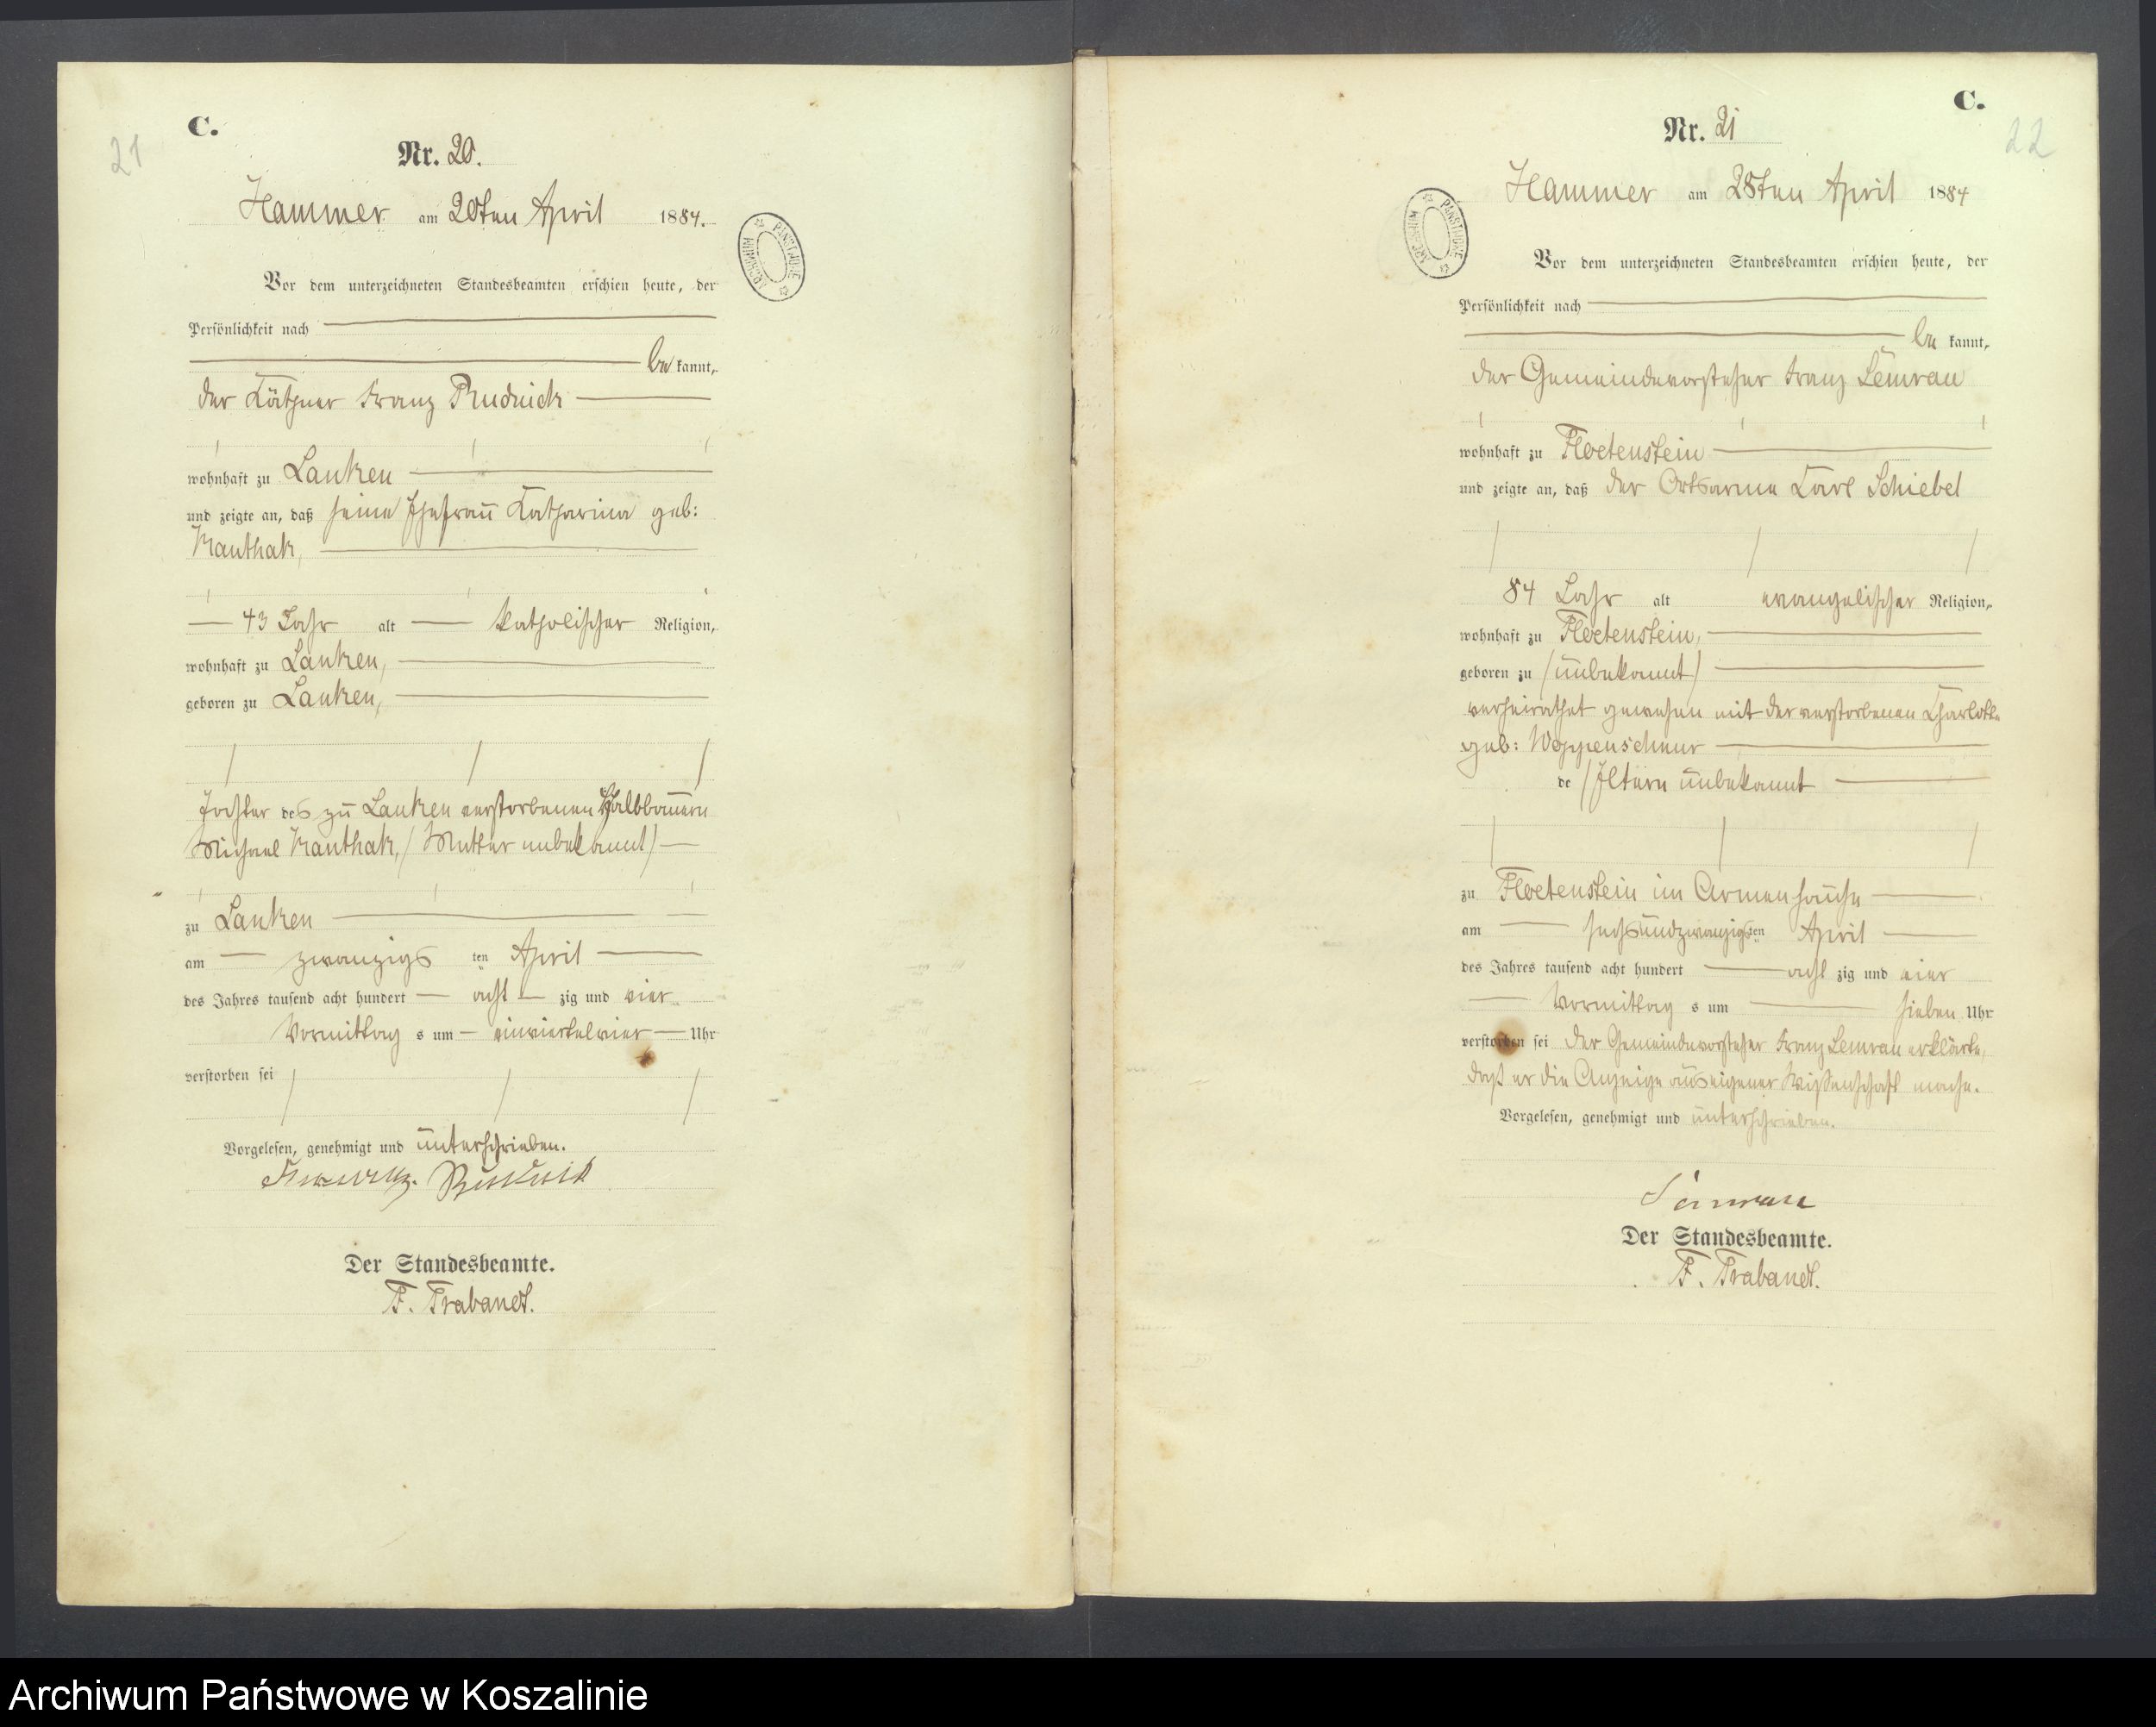 21
C.
Nr. 20.
Hammer am 20ten April 1884.
ARCHIWUM PAŃSTWOWE
Vor dem unterzeichneten Standesbeamten erschien heute, der
Persönlichkeit nach
be kannt,
der Käthner Franz Rudnick
wohnhaft zu Lanken
und zeigte an, daß seine Ehefrau Katharina geb:
Kanthak,
43 Jahr alt katholischer Religion,
wohnhaft zu Lanken,
geboren zu Lanken,
Tochter des zu Lanken verstorbenen Halbbauern
Michael Kanthak, / Mutter unbekannt /
zu Lanken
am zwanzigs ten April
des Jahres tausend acht hundert acht zig und vier
Vormittag s um einviertelvier Uhr
verstorben sei
Vorgelesen, genehmigt und unterschrieben.
Franz
Der Standesbeamte.
F. Trabandt.
C.
22
Nr. 21
Hammer am 28ten April 1884
ARCHIWUM PAŃSTWOWE
Vor dem unterzeichneten Standesbeamten erschien heute, der
Persönlichkeit nach
be kannt,
der Gemeindevorsteher Franz Semrau
wohnhaft zu Floetenstein
und zeigte an, daß der Ortsarme Carl Schiebel
84 Jahr alt evangelischer Religion,
wohnhaft zu Floetenstein,
geboren zu / unbekannt /
verheirathet gewesen mit der verstorbenen Charlotte
geb:
de / Eltern unbekannt
zu Floetenstein im Armenhause
am sechsundzwanzigsten April
des Jahres tausend acht hundert acht zig und vier
Vormittag s um sieben Uhr
verstorben sei der Gemeindevorsteher Franz Semrau erklärte,
daß er die Anzeige aus eigener Wissenschaft mache.
Vorgelesen, genehmigt und unterschrieben.
Semrau
Der Standesbeamte.
F. Trabandt.
Archiwum Państwowe w Koszalinie